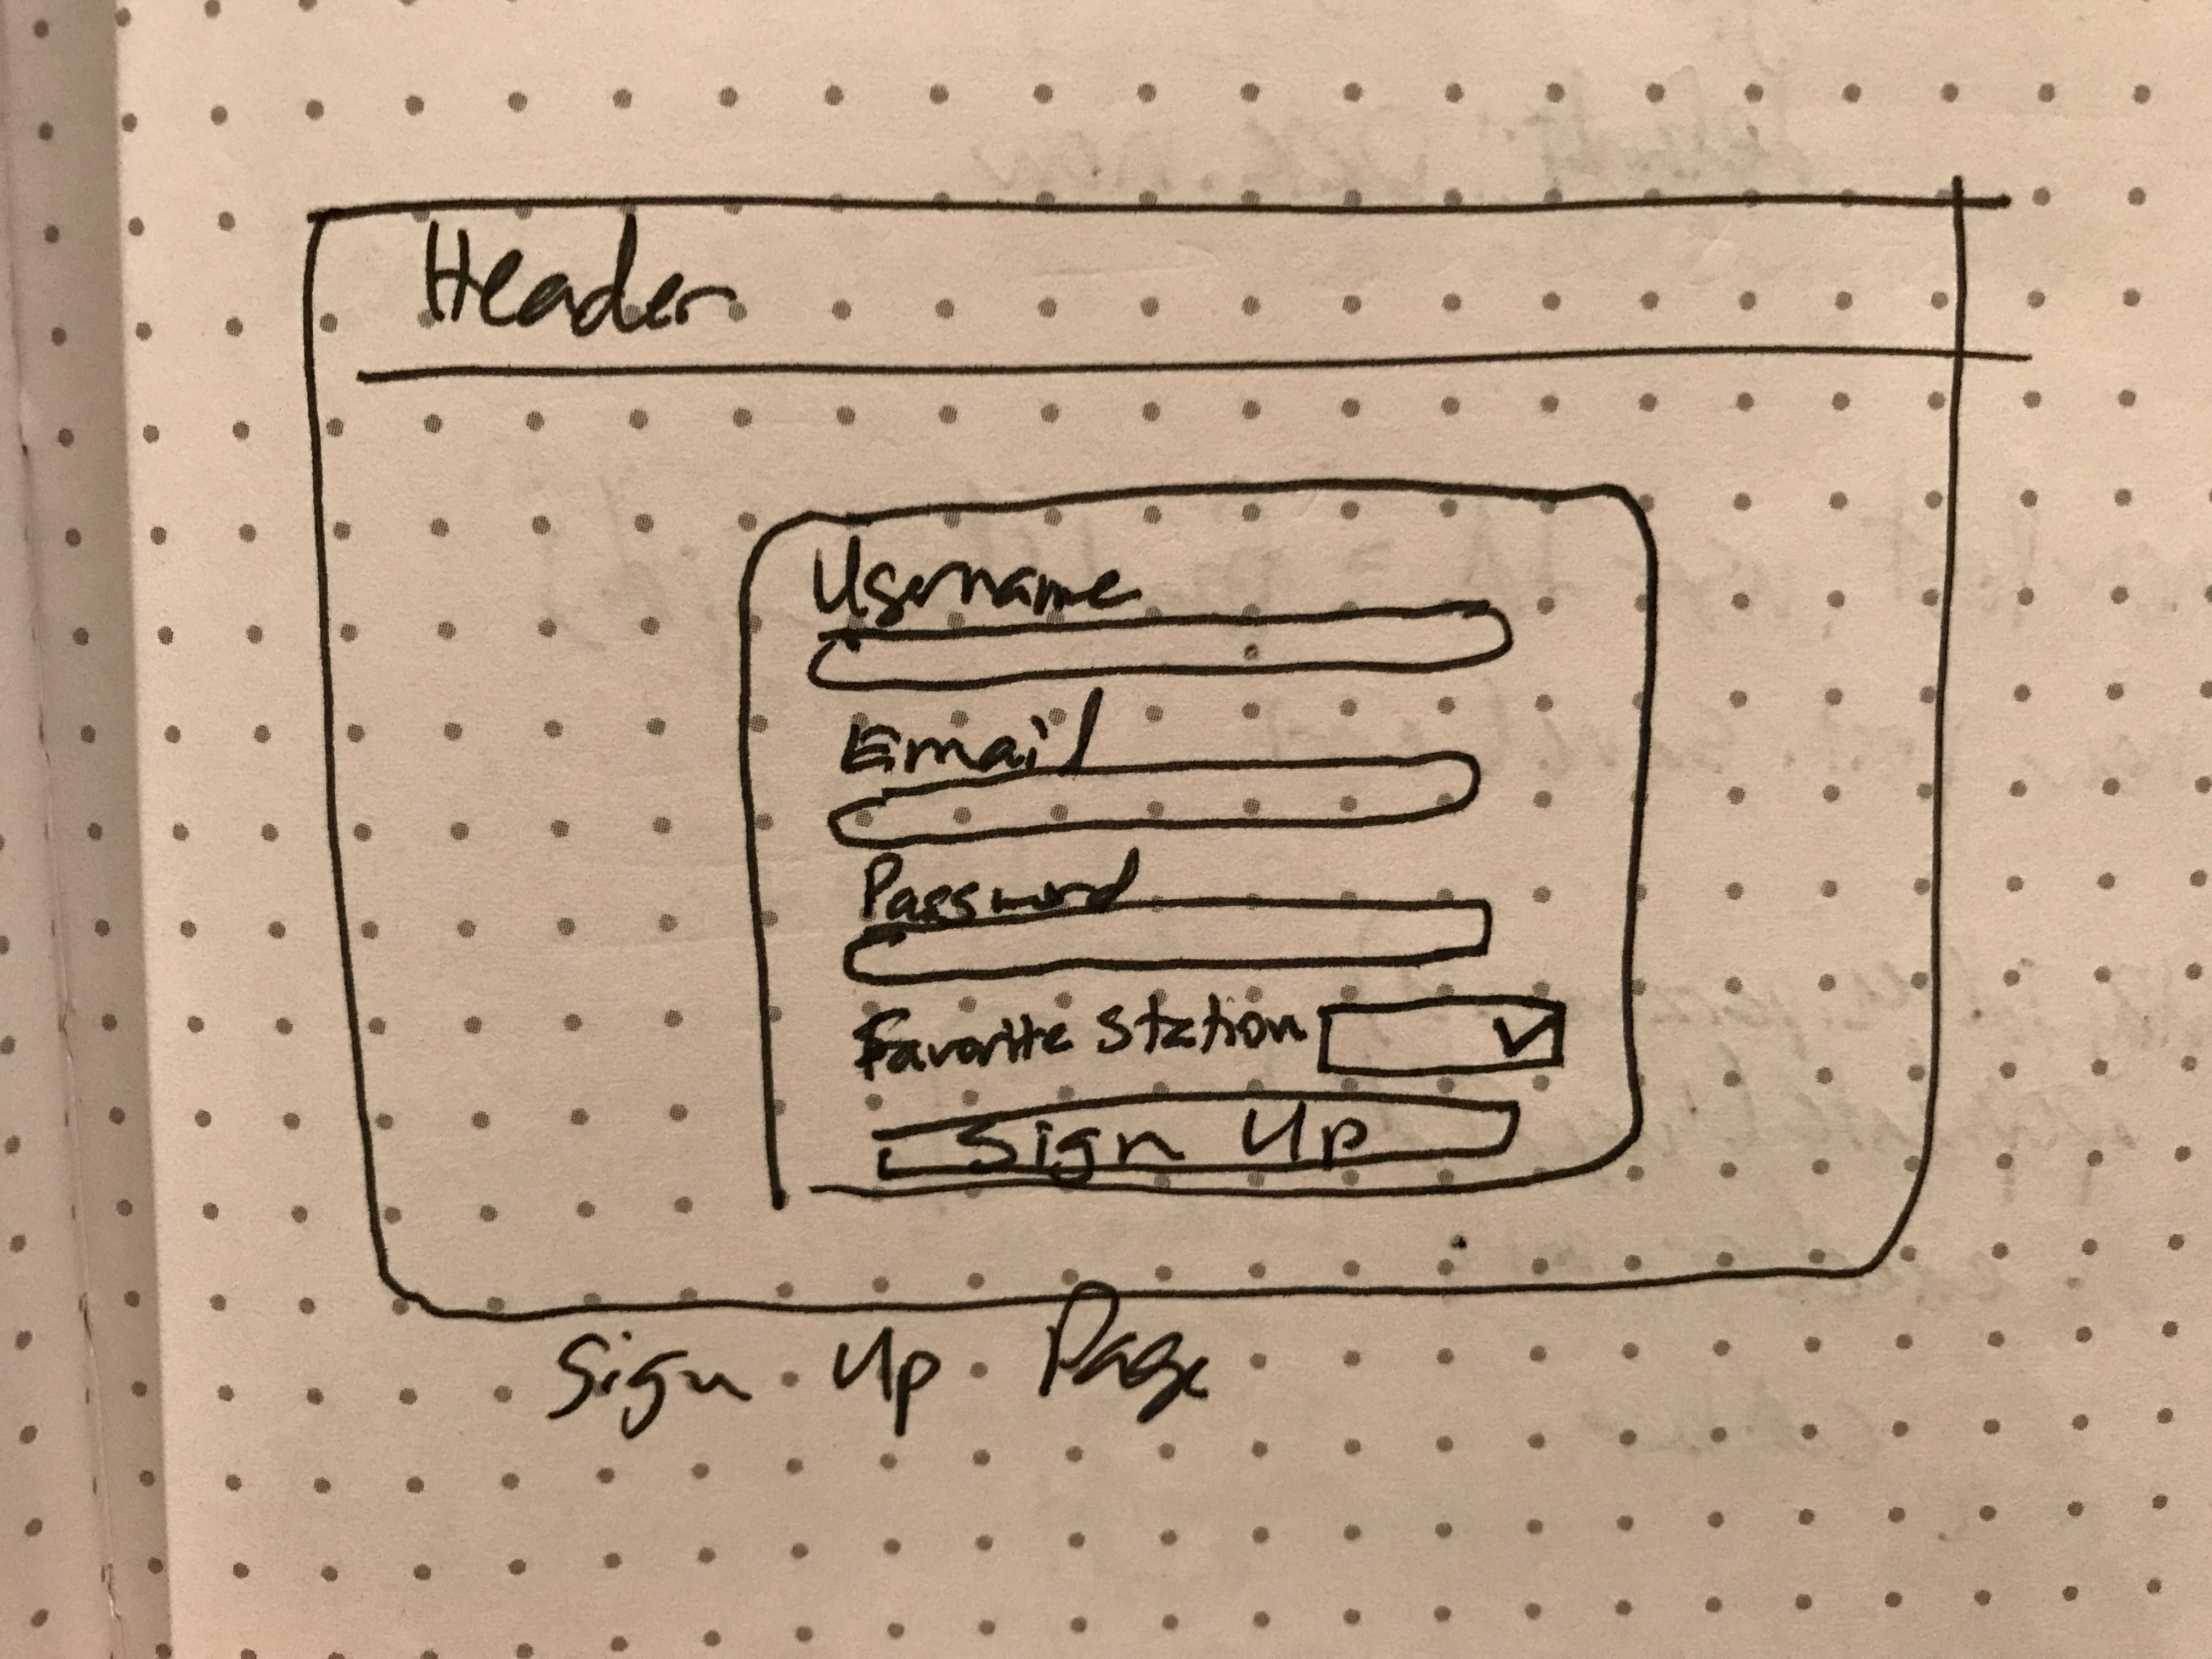 Header
Username
Email
Password
Favorite Station
Sign Up
Sign Up Page